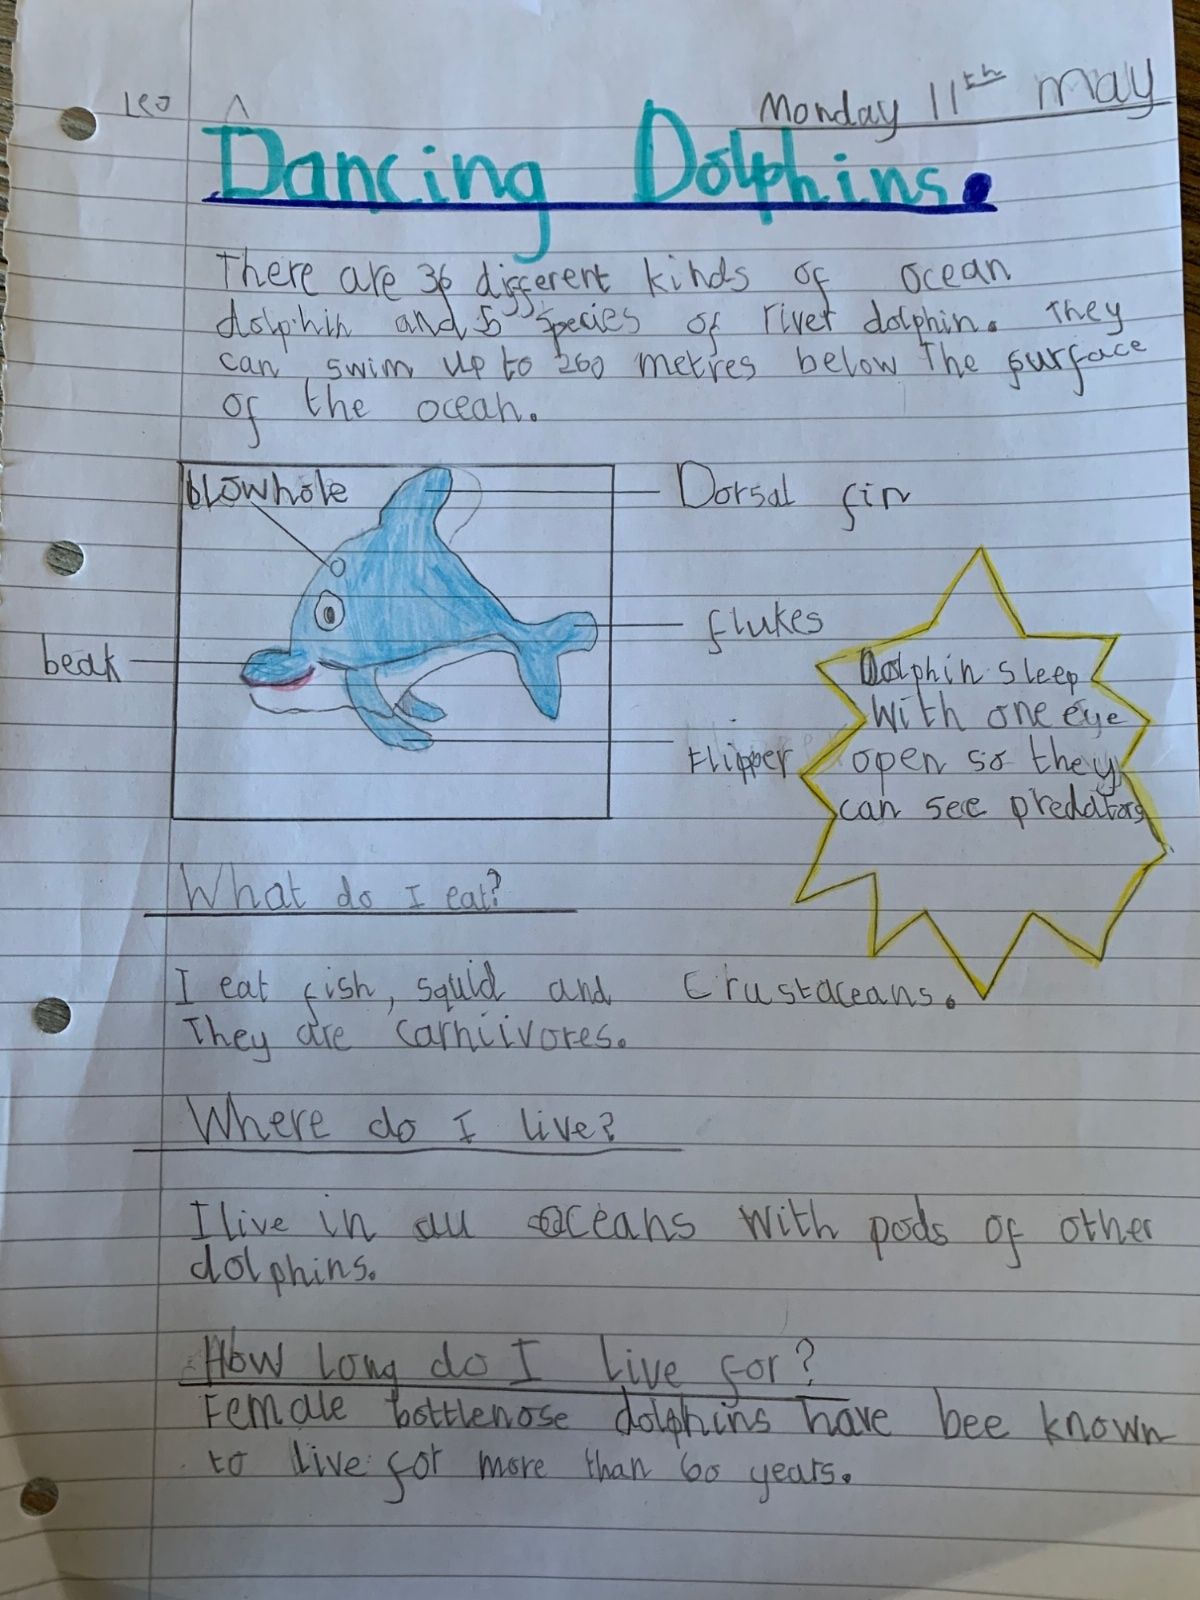 Leo A
Monday 11th May
Dancing Dolphins.
There are 36 different kinds of ocean
dolphin and 5 species of river dolphin. They
can swim up to 260 metres below The surface
of the ocean.
blowhole
Dorsal fin
flukes
beak
Flipper
Dolphin sleep
With one eye
open so they
can see predators
What do I eat?
I eat fish, squid and Crustaceans.
They are carniivores.
Where do I live?
I live in all oceans with pods of other
dolphins.
How long do I live for?
Female bottlenose dolphins have bee known
to live for more than 60 years.